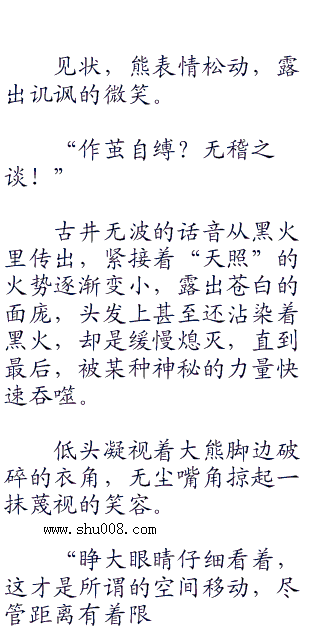 见状，熊表情松动，露
出讥讽的微笑。
“作茧自缚？无稽之
谈！”
古井无波的话音从黑火
里传出，紧接着“天照”的
火势逐渐变小，露出苍白的
面庞，头发上甚至还沾染着
黑火，却是缓慢熄灭，直到
最后，被某种神秘的力量快
速吞噬。
低头凝视着大熊脚边破
碎的衣角，无尘嘴角掠起一
抹蔑视的笑容。
www.shu008.com
“睁大眼睛仔细看着，
这才是所谓的空间移动，尽
管距离有着限